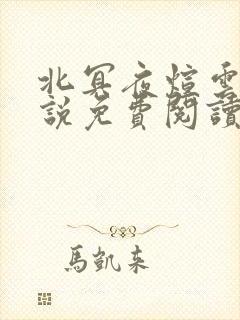 北冥夜煊雲
說免費閱讀
馬凱來